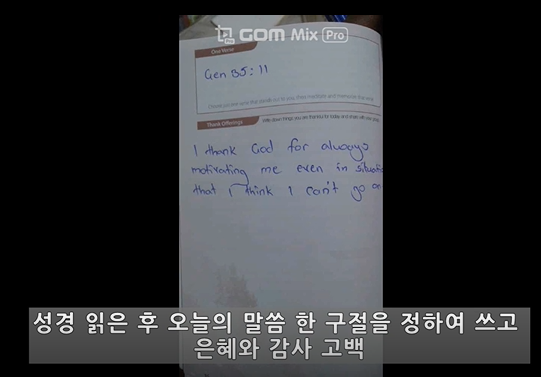 GOM Mix Pro
One Word
Gen 35:11
Thank Offerings
I thank God for always
motivating me even in situatio
that I think I can't go on
성경 읽은 후 오늘의 말씀 한 구절을 정하여 쓰고
은혜와 감사 고백